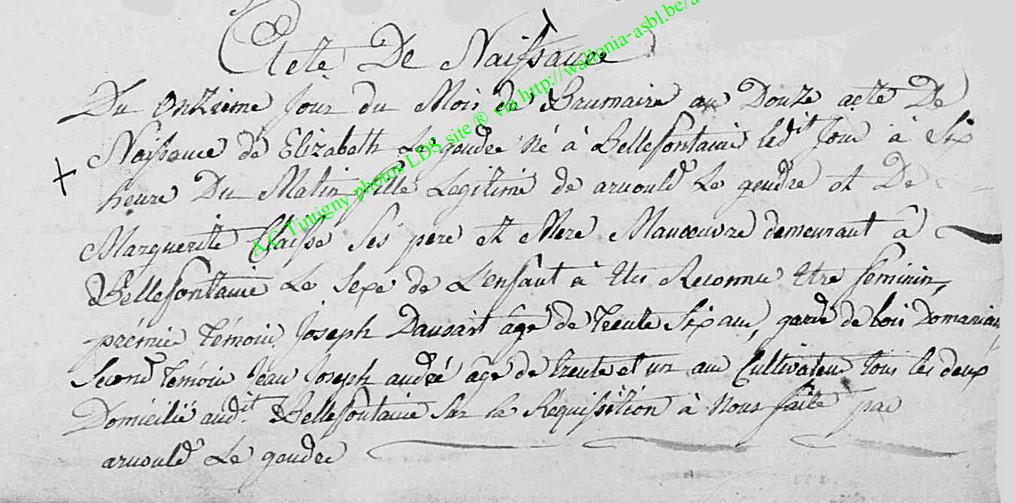 Acte De Naissance
Du Onzieme Jour du Mois de Brumaire an Douze acte De
Naissance de Elizabeth Le gendre né à Bellefontaine ledit Jour à Six
heure Du Matin fille Legitime de arnould Le gendre et De
Marguerite Claisse Ses pere et Mere Manoeuvre demeurant à
Bellefontaine Le Sexe de L'enfant à Eté Reconnu Etre feminin,
prémie temoin Joseph Dausart âgé de trente Six ans, garde de bois Domaniau
Second temoin Jean Joseph andré âgé de trente et un an Cultivateur tous les deux
Domicilié audit Bellefontaine Sur la Réquisition à Nous faite par
arnould Le gendre
AC Tintigny photos LDS site ® via http://wallonia-asbl.be/a